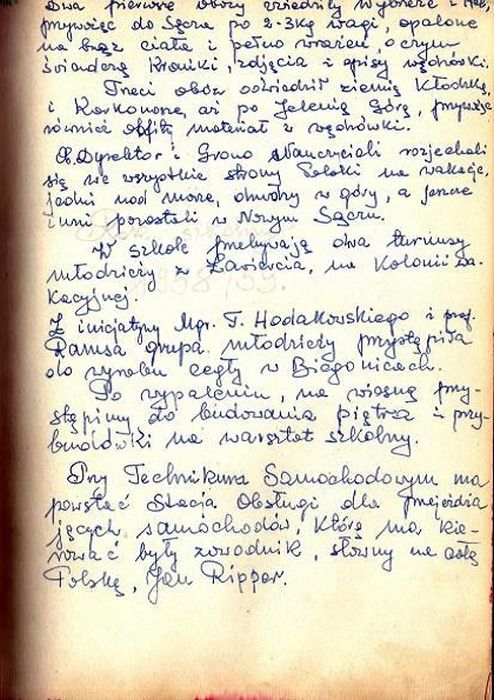 Dwa pierwsze obozy zwiedziły Wybrzeże i Hel,
przywożąc do Sącza po 2-3 kg wagi, opalone
na brąz ciała i pełno wrażeń, o czym
świadczą Kroniki, zdjęcia i opisy wędrówki.
Trzeci obóz odwiedził ziemię Kłodzką,
i Karkonosze, aż po Jelenią Górę, przywożąc
również obfity materiał z wędrówki.
Ob. Dyrektor i Grono Nauczycieli rozjechali
się we wszystkie strony Polski na wakacje,
jedni nad morze, drudzy w góry, a jeszcze
inni pozostali w Nowym Sączu.
W szkole przebywają dwa turnusy
młodzieży z Zawiercia, na Kolonii wa-
kacyjnej.
Z inicjatywy Mgr. T. Hodakowskiego i prof.
Ramsa grupa młodzieży przystąpiła
do wyrobu cegły w Biegonicach.
Po wypaleniu, na wiosnę przy-
stąpimy do budowania piętra i przy-
budówki na warsztat szkolny.
Przy Technikum Samochodowym ma
powstać Stacja Obsługi dla przejeżdża
jących samochodów, którą ma kie-
rować były zawodnik, słynny na całą
Polskę, Jan Ripper.